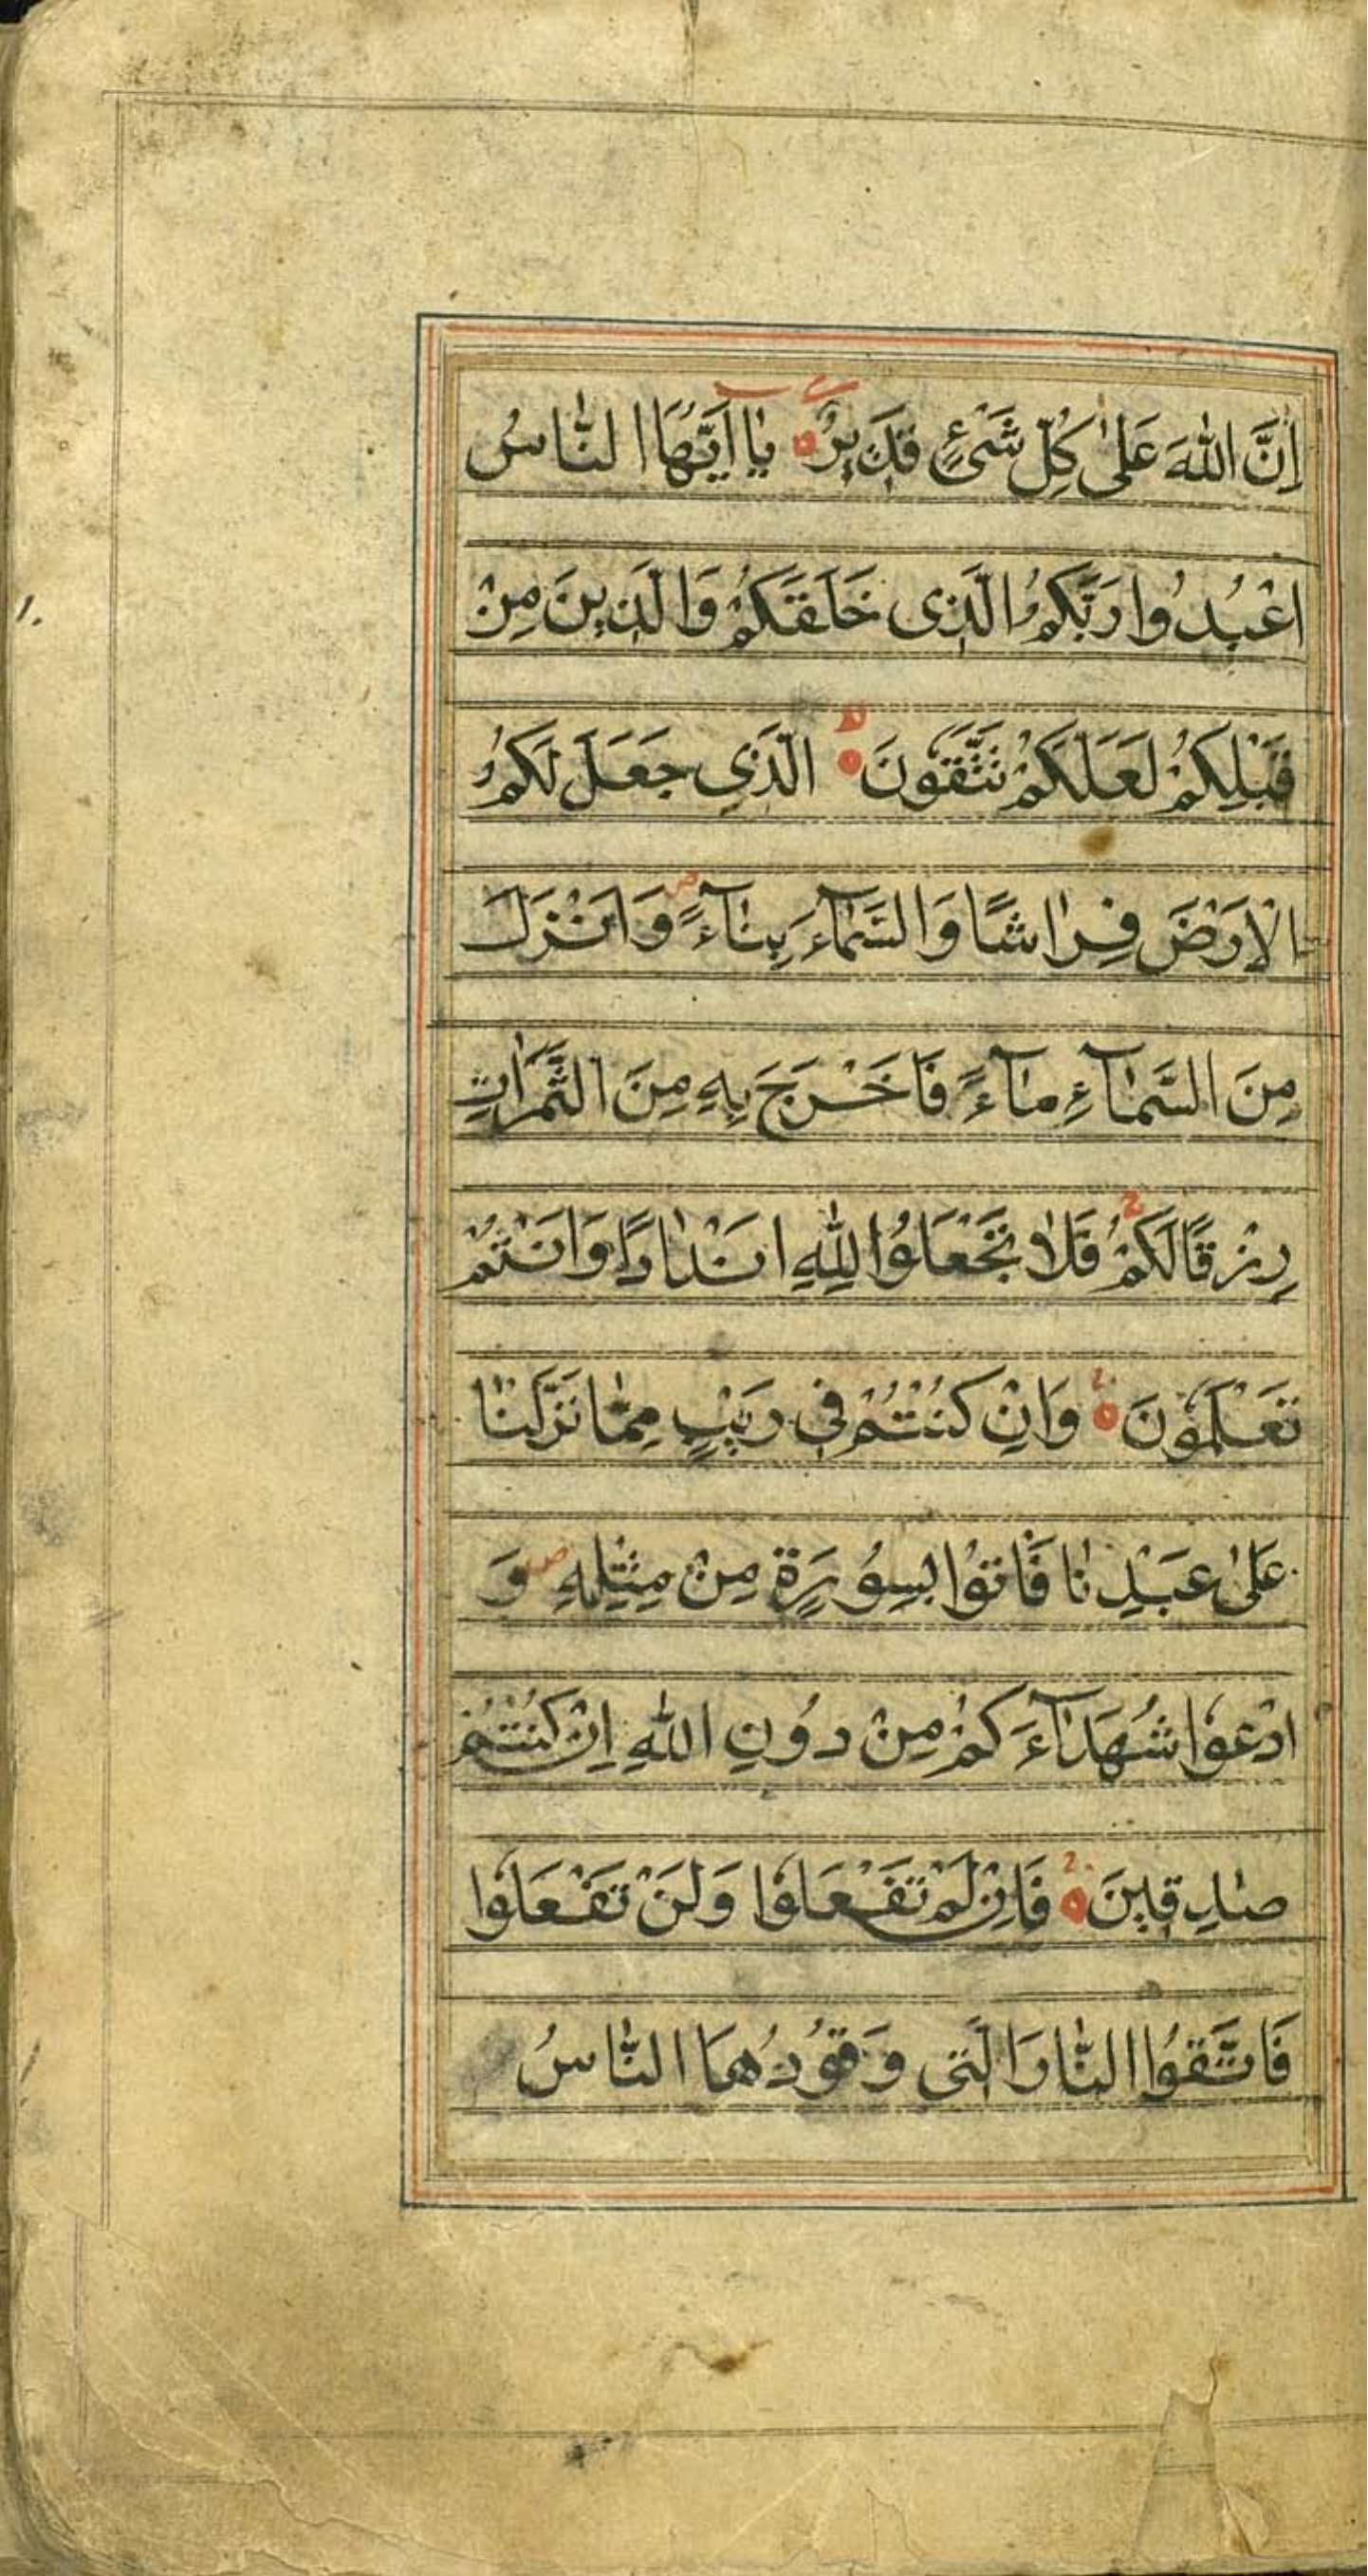 اِنَّ اللّٰهَ عَلٰى كُلِّ شَىْءٍ قَدِيرٌ ۝ يٰا اَيُّهَا النّٰاسُ
اعْبُدُوا رَبَّكُمُ الَّذِى خَلَقَكُمْ وَالَّذِينَ مِنْ
قَبْلِكُمْ لَعَلَّكُمْ تَتَّقُونَ ۝ الَّذِي جَعَلَ لَكُمُ
الْاَرْضَ فِرٰاشًا وَالسَّمٰآءَ بِنٰآءً ص وَاَنْزَلَ
مِنَ السَّمٰآءِ مٰآءً فَاَخْرَجَ بِهِ مِنَ الثَّمَرٰاتِ
رِزْقًا لَكُمْ ج فَلٰا تَجْعَلُوا لِلّٰهِ اَنْدٰادًا وَاَنْتُمْ
تَعْلَمُونَ ۝ وَاِنْ كُنْتُمْ فِى رَيْبٍ مِمّٰا نَزَّلْنٰا
عَلٰى عَبْدِنٰا فَاْتُوا بِسُورَةٍ مِنْ مِثْلِهِ ص وَ
ادْعُوا شُهَدٰآءَكُمْ مِنْ دُونِ اللّٰهِ اِنْ كُنْتُمْ
صٰادِقِينَ ۝ فَاِنْ لَمْ تَفْعَلُوا وَلَنْ تَفْعَلُوا
فَاتَّقُوا النّٰارَ الَّتِى وَقُودُهَا النّٰاسُ